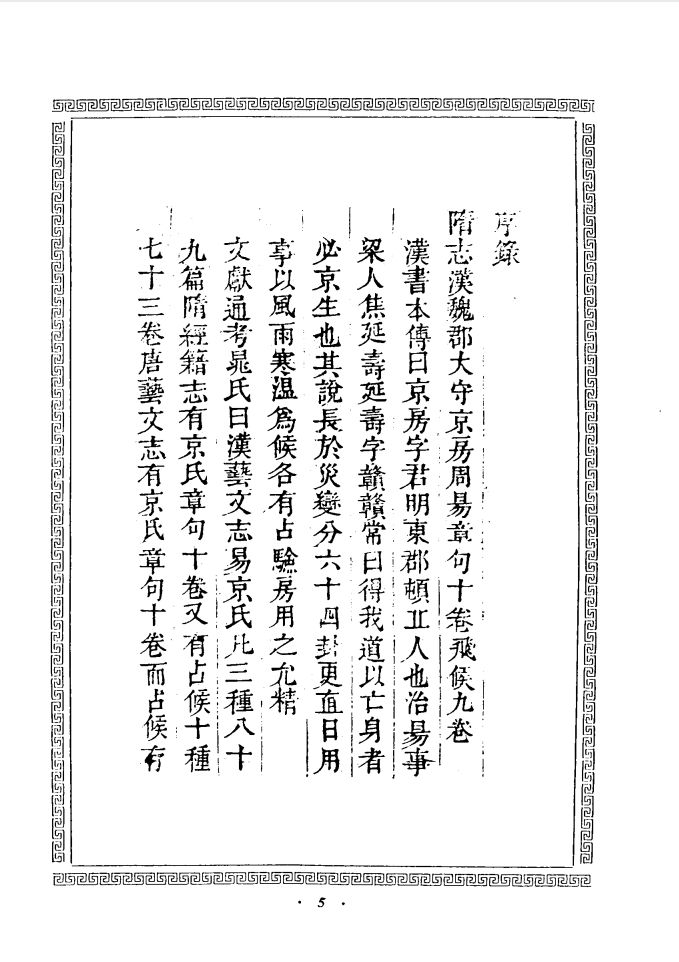 序錄
隋志漢魏郡大守京房周昜章句十卷飛候九卷
漢書本傳曰京房字君明東郡頓丘人也治昜事
梁人焦延壽延壽字贛贛常曰得我道以亡身者
必京生也其說長於災變分六十四封更直日用
事以風雨寒温爲候各有占驗房用之尤精
文獻通考晁氏曰漢藝文志易京氏凡三種八十
九篇隋經籍志有京氏章句十卷又有占候十種
七十三卷唐藝文志有京氏章句十卷而占候有
· 5 ·